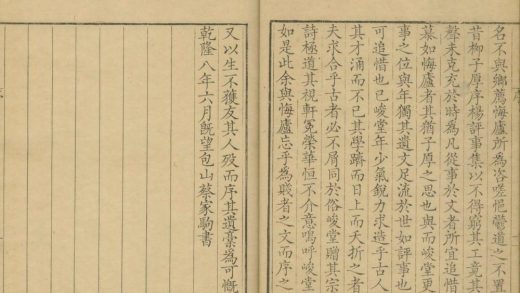 名不與鄉薦悔廬所為咨嗟悒鬱道之不置
昔柳子厚序楊評事集以不得窮其工竟其
聲未克充於時為凡從事於文者所宜追惜
葢如悔廬者其猶子厚之思也與而峻堂更
事之位與年獨其遺文足流於世如評事也
可追惜也已峻堂年少氣銳力求造乎古人
其才涌而不已其學躋而日上而夭折之者
夫求合乎古者必不屑同於俗峻堂贈其宗
詩極道其視軒冕榮華恒不介意嗚呼峻堂
如是此余與悔廬忘乎為賤者之文而序之
又以生不獲友其人歿而序其遺稾為可慨
乾隆八年六月既望包山蔡家駒書